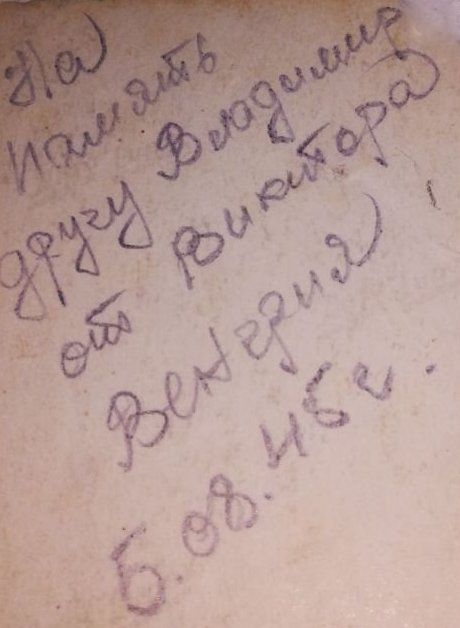 На
память
другу Владимир
от Виктора
Венгрия
5.08.45г.